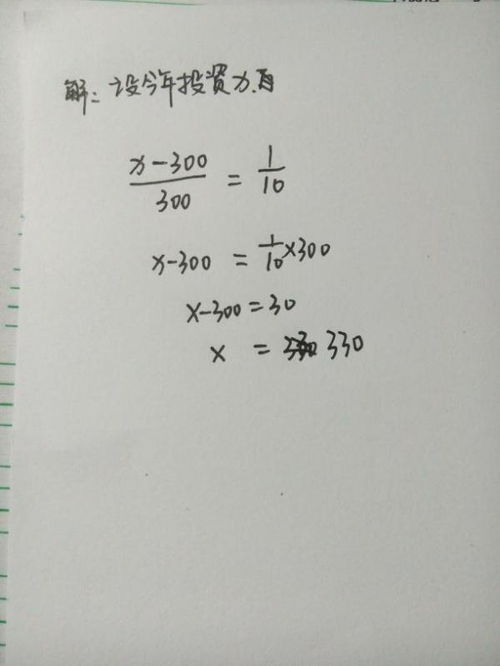 解：设今年投资x
x-300/300 = 1/10
x-300 = 1/10×300
x-300=30
x = 330